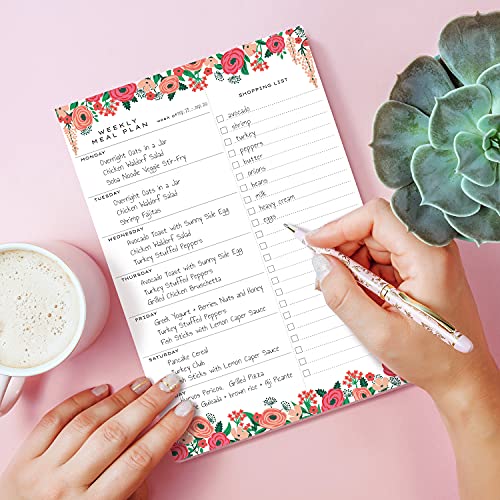 WEEKLY
MEAL PLAN
WEEK OF
MONDAY
Overnight Oats in a Jar
Chicken Waldorf Salad
Soba Noodle Veggie Stir-Fry
TUESDAY
Overnight Oats in a Jar
Chicken Waldorf Salad
Shrimp Fajitas
WEDNESDAY
Avocado Toast with Sunny Side Egg
Chicken Waldorf Salad
Turkey Stuffed Peppers
THURSDAY
Avocado Toast with Sunny Side Egg
Turkey Stuffed Peppers
Grilled Chicken Bruschetta
FRIDAY
Greek Yogurt + Berries, Nuts and Honey
Turkey Stuffed Peppers
Fish Sticks with Lemon Caper Sauce
SATURDAY
Pancake Cereal
Turkey Club
Fish Sticks with Lemon Caper Sauce
Pericos, Grilled Pizza
Guisada + brown rice + Aji Picante
SHOPPING LIST
avocado
shrimp
turkey
peppers
butter
onions
beans
milk
heavy cream
eggs